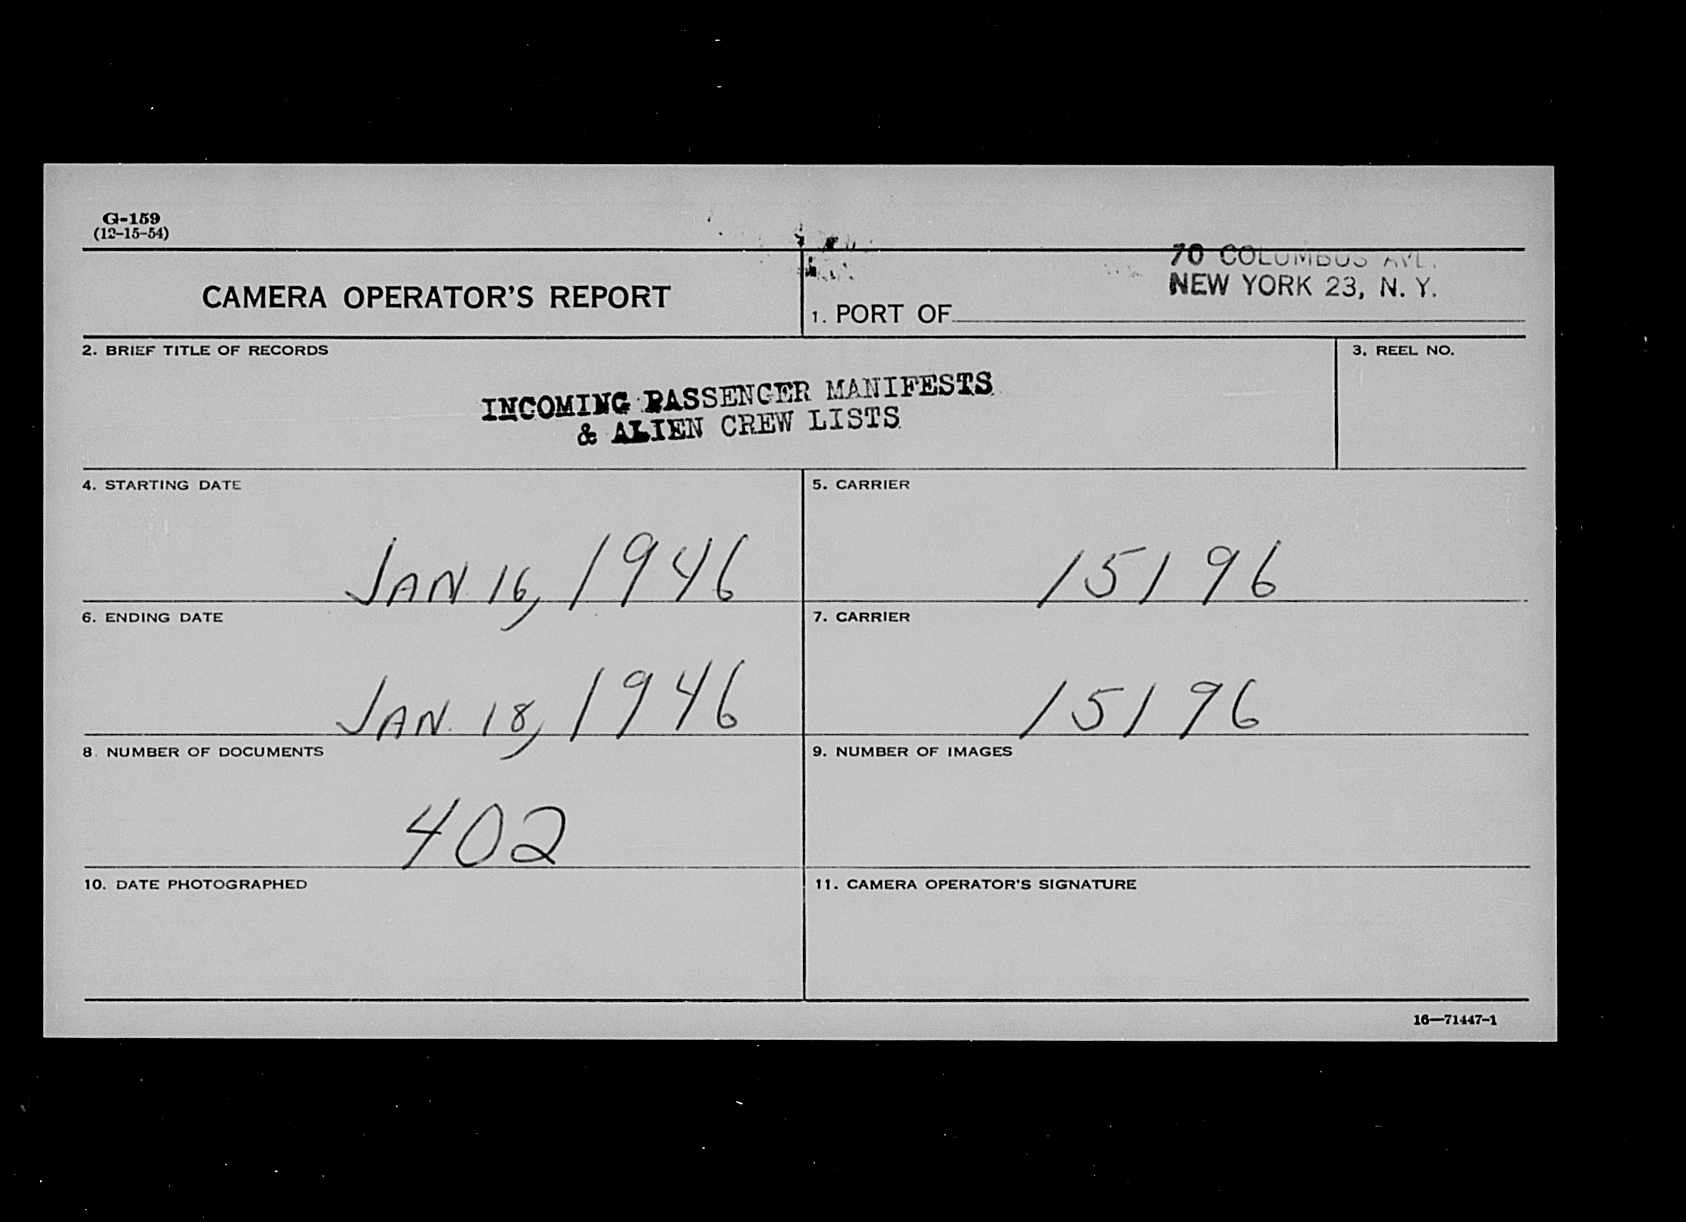 G-159
(12-15-54)
70 COLUMBUS AVE.
NEW YORK 23, N. Y.
CAMERA OPERATOR'S REPORT
1. PORT OF
2. BRIEF TITLE OF RECORDS
3. REEL NO.
INCOMING PASSENGER MANIFESTS
& ALIEN CREW LISTS
4. STARTING DATE
5. CARRIER
JAN. 16, 1946
15196
6. ENDING DATE
7. CARRIER
JAN. 18, 1946
15196
8. NUMBER OF DOCUMENTS
9. NUMBER OF IMAGES
402
10. DATE PHOTOGRAPHED
11. CAMERA OPERATOR'S SIGNATURE
16—71447-1